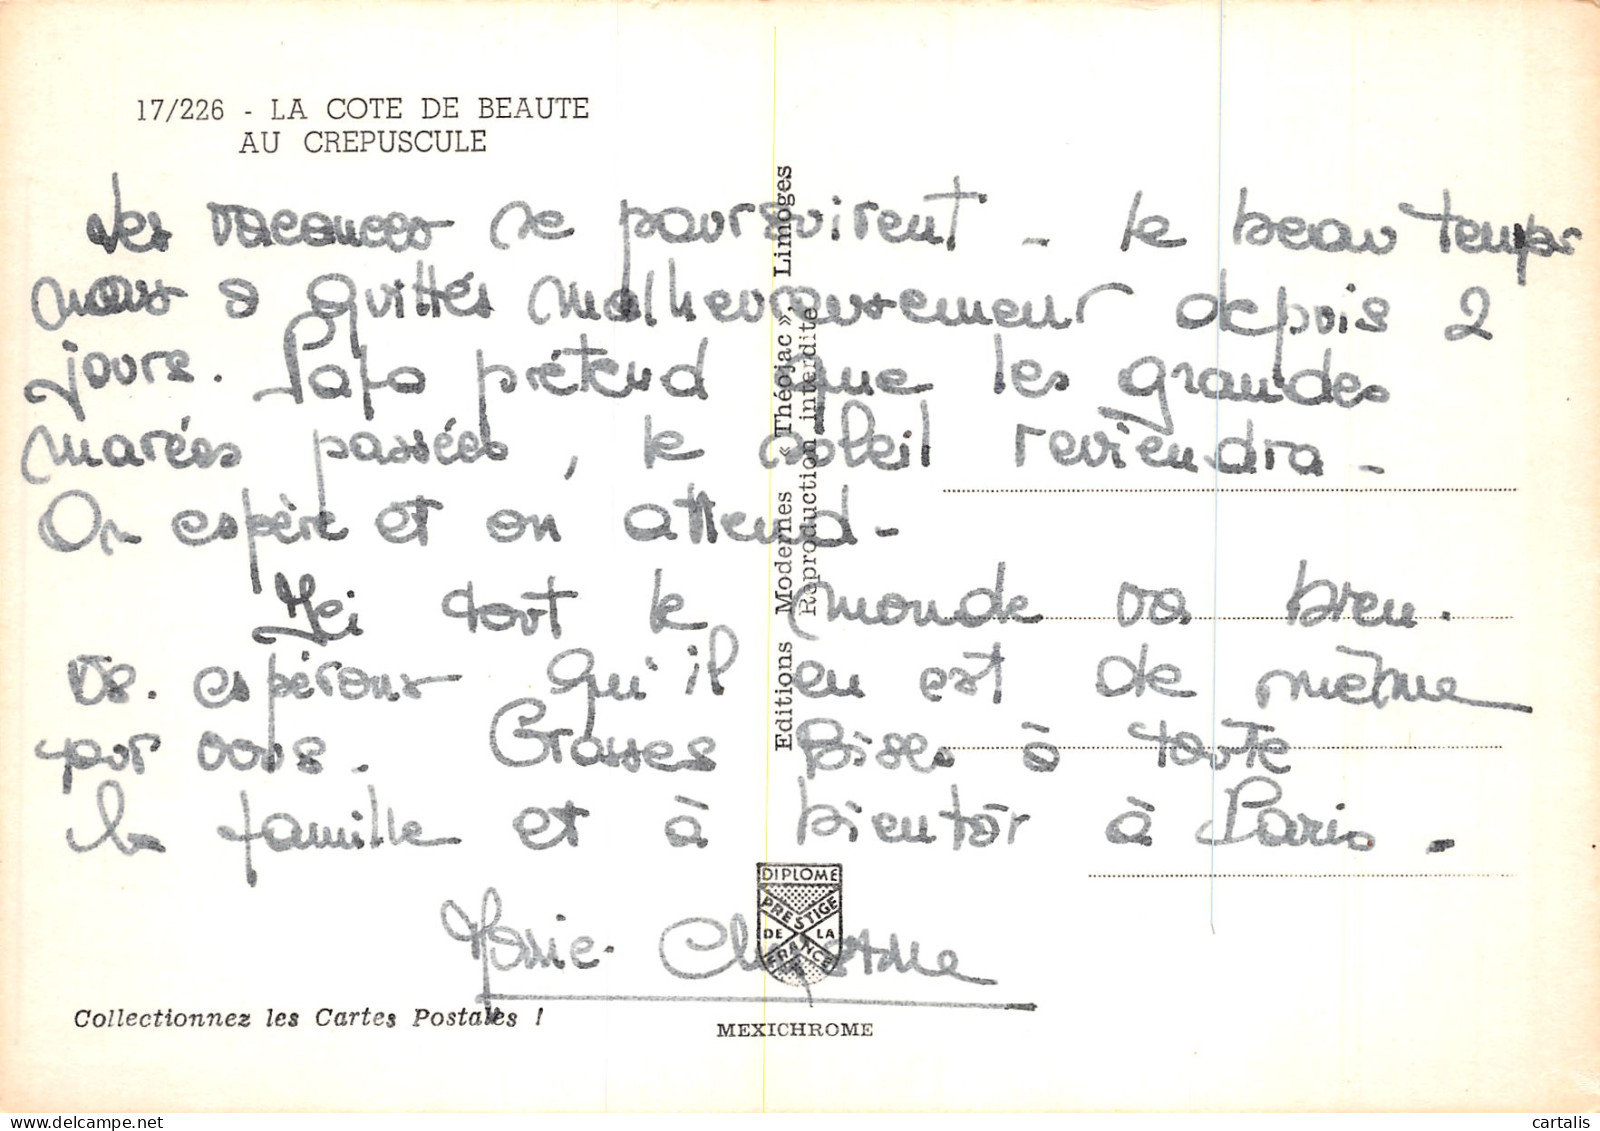 17/226 - LA COTE DE BEAUTE
AU CREPUSCULE
Les vacances se poursuivent - le beau temps
nous a quittés malheureusement depuis 2
jours. Papa prétend que les grandes
marées passées, le soleil reviendra -
On espère et on attend -
Ici tout le monde va bien.
Vs. espérons qu'il en est de même
pour vous. Grosses Bises à toute
la famille et à bientôt à Paris.
Marie-Christine
Editions Modernes « Théojac », Limoges
Reproduction interdite
DIPLOME
PRESTIGE
DE LA
FRANCE
Collectionnez les Cartes Postales !
MEXICHROME
cartalis